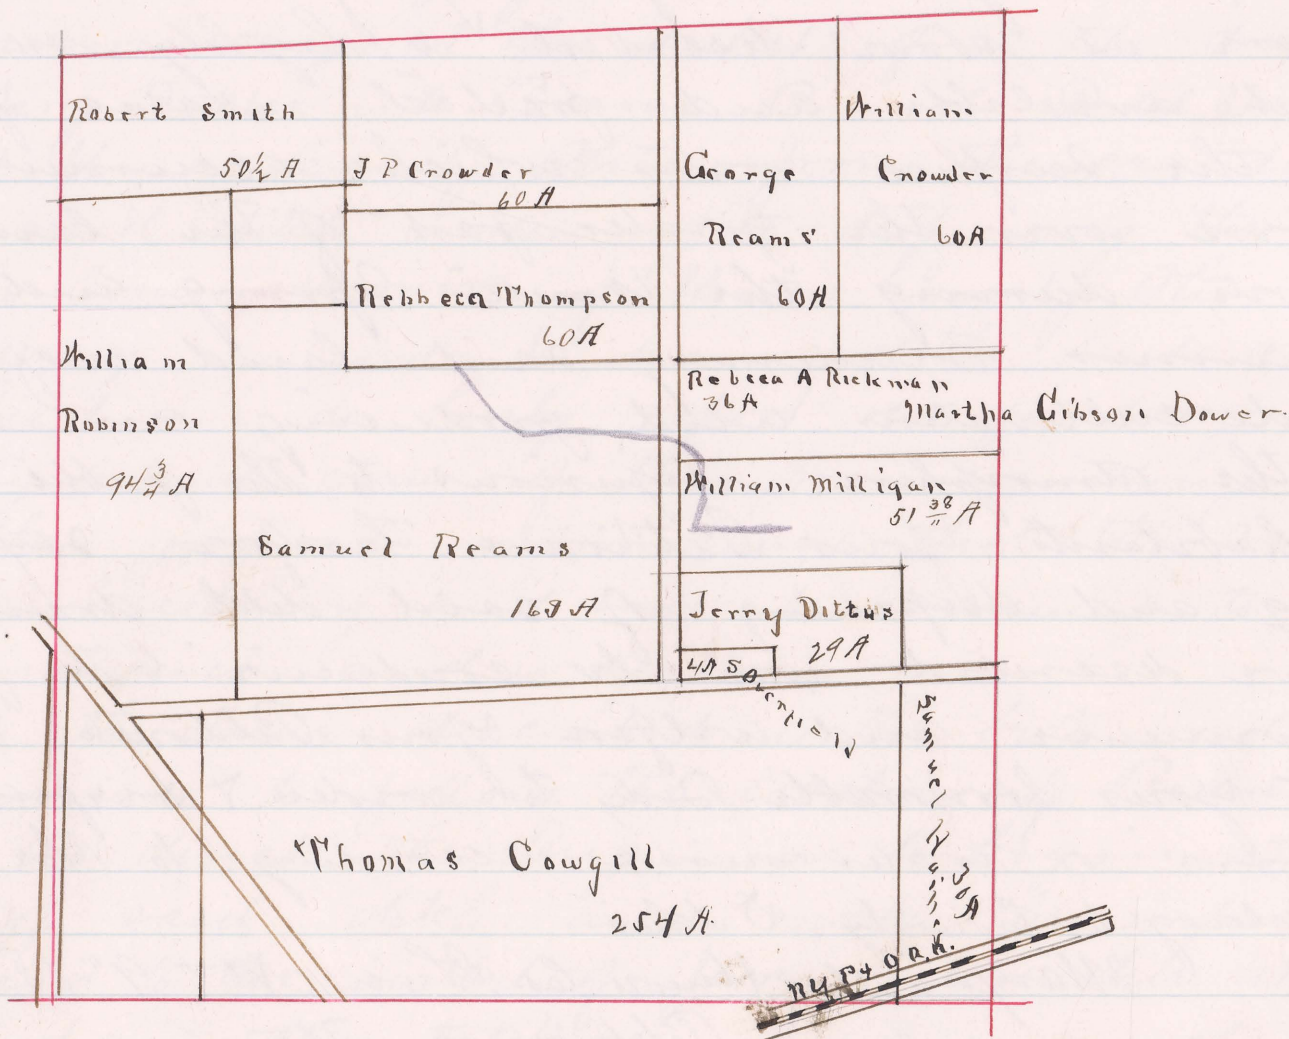 Robert Smith
50 1/2 A
J P Crowder
60 A
George
Reams
60 A
William
Crowder
60 A
Rebbeca Thompson
60 A
William
Robinson
94 3/4 A
Rebeca A Rickman
36 A
Martha Gibson Dower.
William Milligan
51 38/11 A
Samuel Reams
168 A
Jerry Dittus
29 A
4A S Overtions
Samuel
30 A
Thomas Cowgill
254 A.
NY P & O R.R.